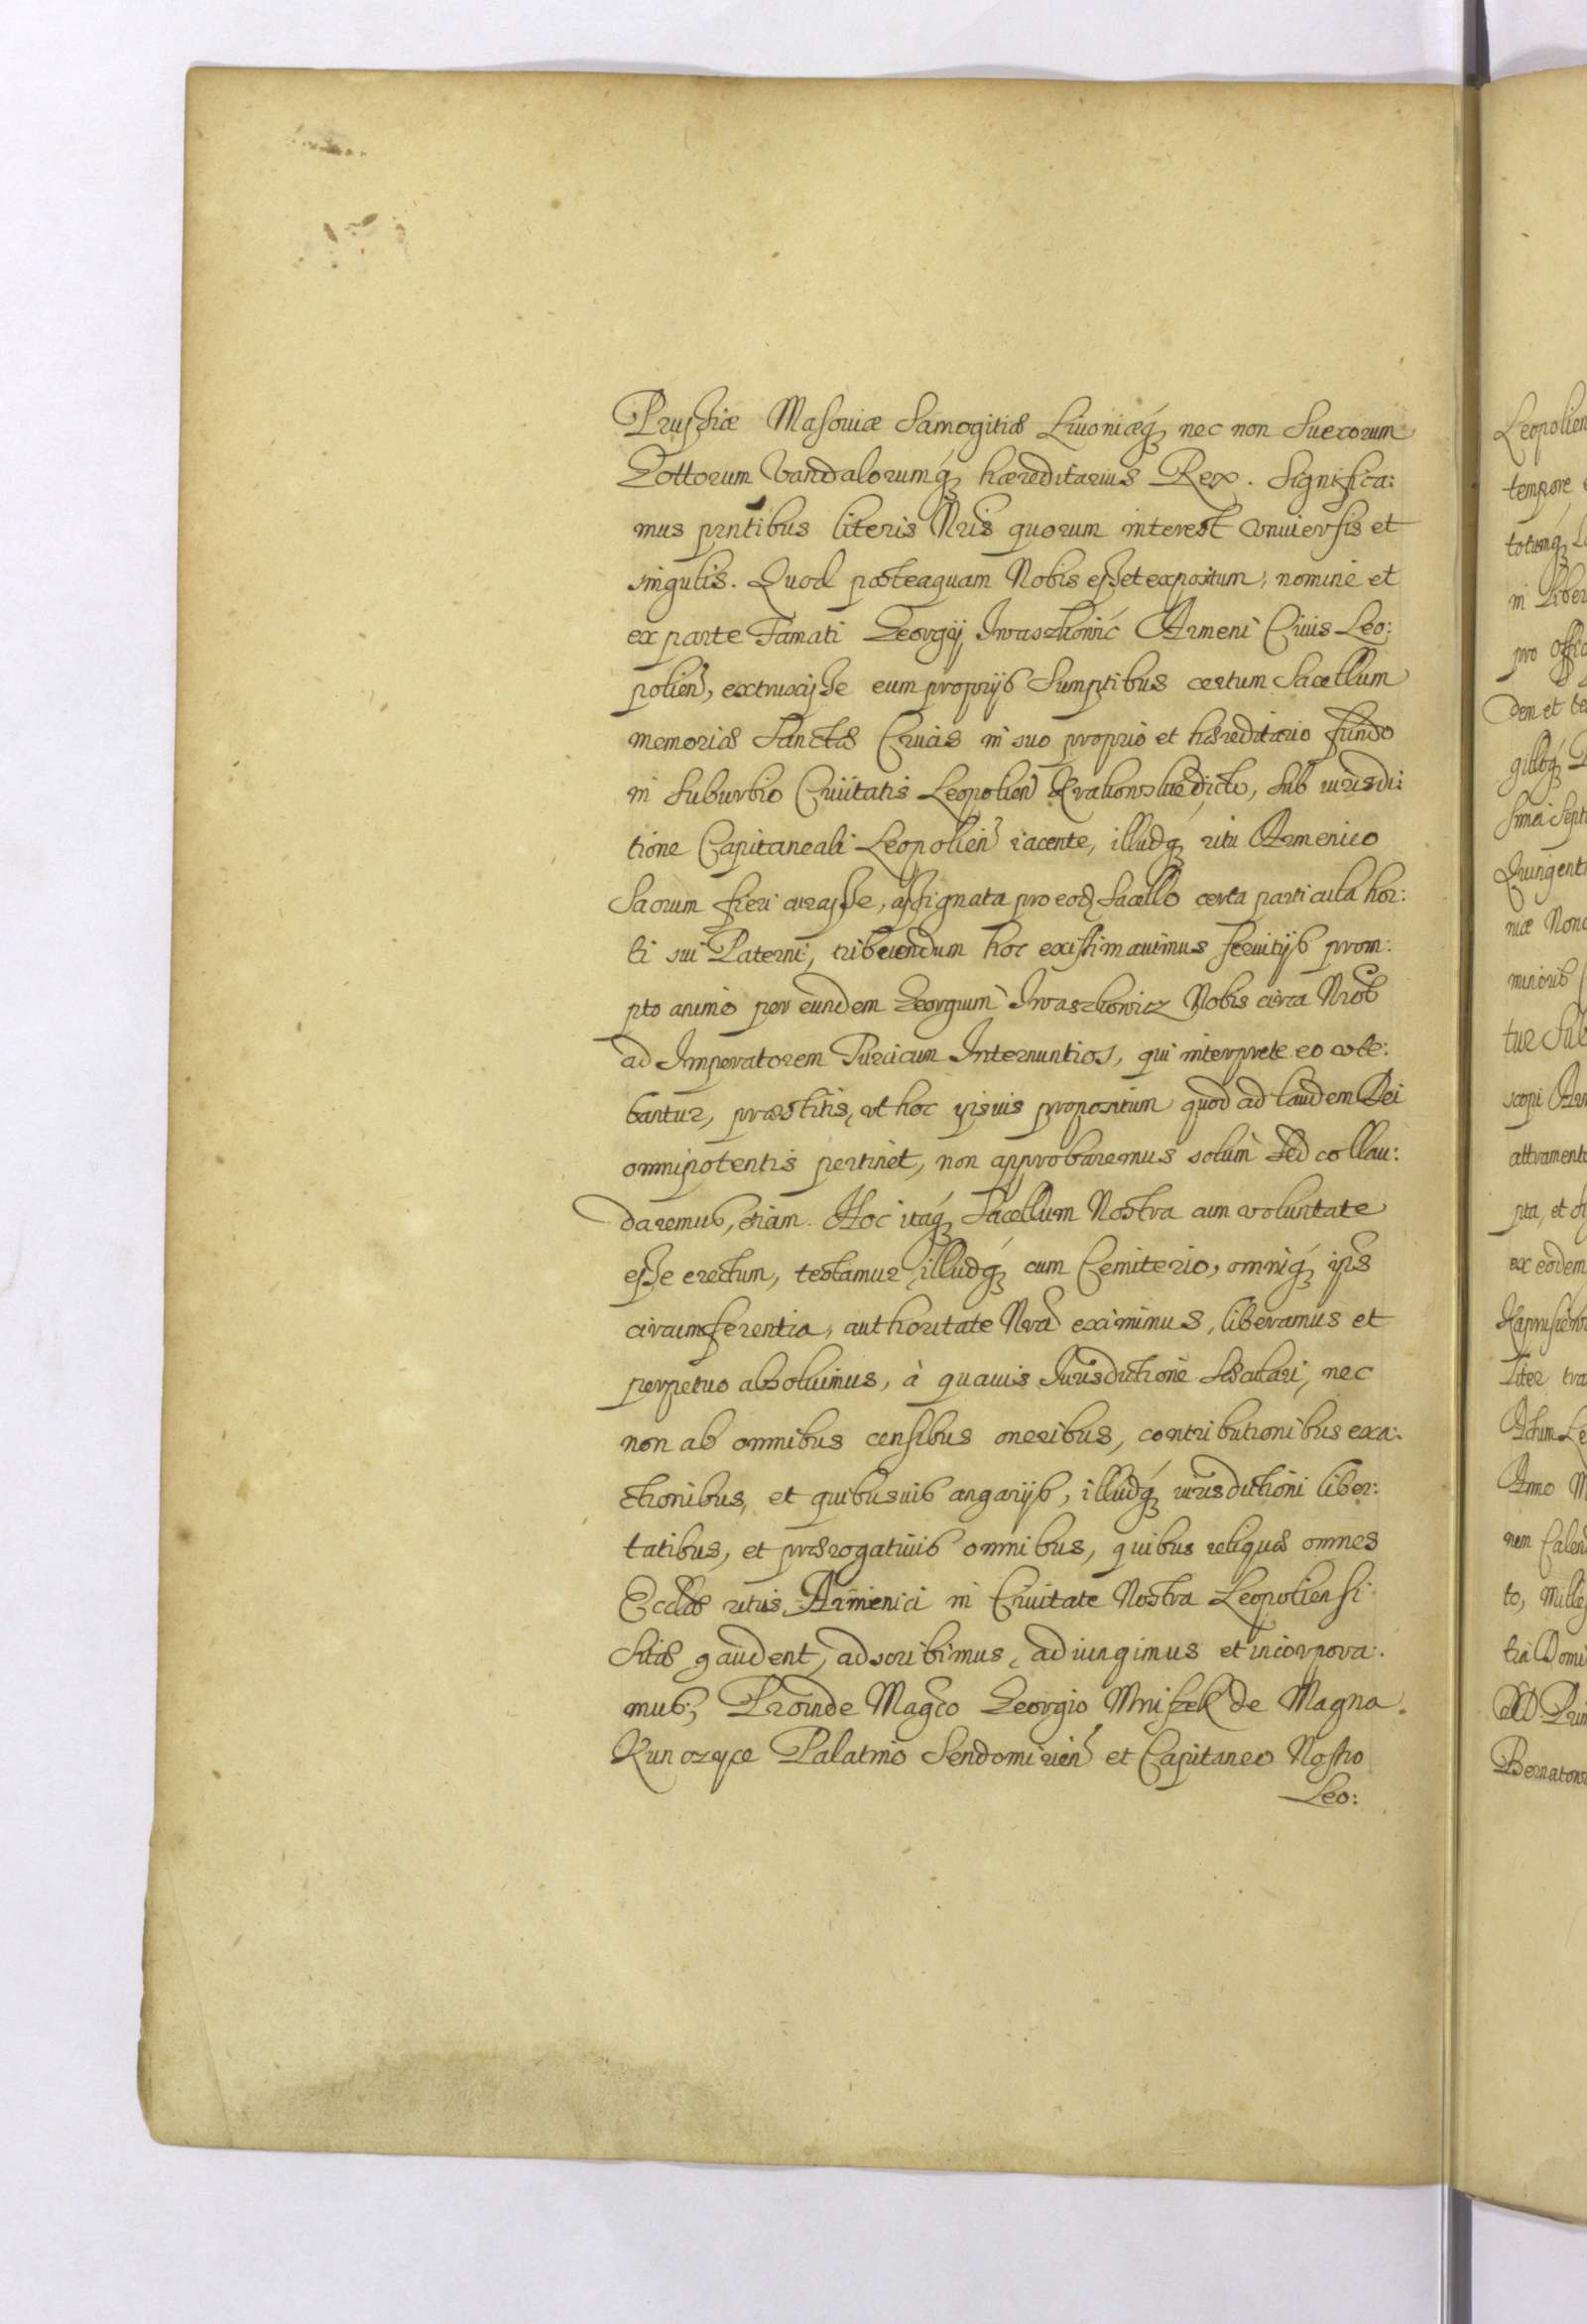 Prussiæ Masouiæ Samogitiæ Liuoniæq́ꝫ nec non Suecorum
Gottorum Vandalorumq́ꝫ hæreditarius Rex. Significa:
mus prntibus literis Nris quorum interest vniuersis et
singulis. Quod posteaquam Nobis esset expositum, nomine et
ex parte Famati Georgij Iwaszkowic Armeni Ciuis Leo:
polien, extruxisse eum proprijs Sumptibus certum Sacellum
memoriæ Sanctæ Crucis in suo proprio et hæreditario fundo
in Suburbio Ciuitatis Leopolien dicto, sub iurisdi:
tione Capitaneali Leopolien iacente, illudq́ꝫ ritu Armenico
Sacrum fieri curasse, assignata pro eod Sacello certa particula hor:
ti sui Paterni, tribuendum hoc existimauimus seruitijs prom:
pto animo per eundem Georgium Iwaszkowicz Nobis circa Nros
ad Imperatorem Turcicum Internuntios, qui interprete eo vte:
bantur, præstitis, vt hoc ipsius propositum quod ad laudem Dei
omnipotentis pertinet, non approbaremus solum sed collau:
daremus, etiam. Hoc itaq́ꝫ Sacellum Nostra cum voluntate
esse erectum, testamur, illudq́ꝫ cum Cemiterio, omniq́ꝫ ipis
circumferentia, authoritate Nra eximimus, liberamus et
perpetuo absoluimus, à quauis Iurisdictione Sæculari, nec
non ab omnibus censibus oneribus, contributionibus exa:
ctionibus, et quibusuis angarijs, illudq́ꝫ iurisdictioni liber:
tatibus, et prærogatiuis omnibus, quibus reliquæ omnes
Ecclæ ritus Armenici in Ciuitate Nostra Leopoliensi
sitæ gaudent, adscribimus, adiungimus et incorpora:
mus; Proinde Magco Georgio Mniszek de Magna
Kunczyce Palatino Sendomirien et Capitaneo Nostro
Leo:
Leopolien
tempore
totumq́ꝫ
in Liber
pro Offic
dem et te
gillóq́ꝫ
simi Sept
Quingent
niæ Nono
minoris
tur Sub
scopi Ar
attrament
pta, et
ex eodem
liter tra
Actum Le
Anno M
nem Calen
to, Mille
tia Domi